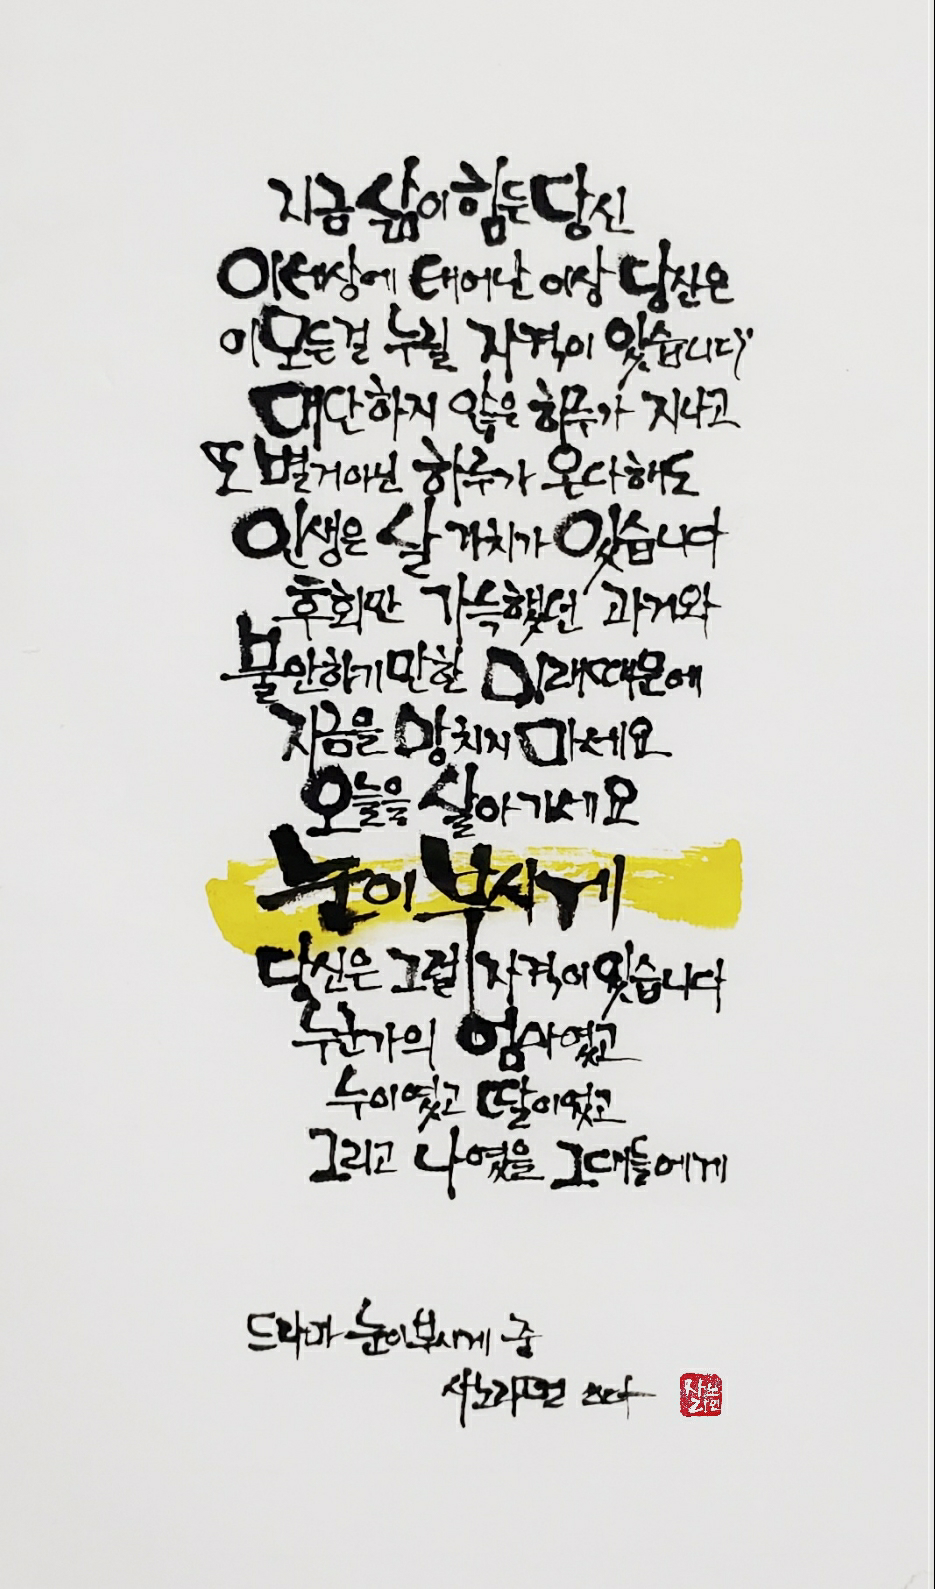 지금 삶이 힘든 당신
이세상에 태어난 이상 당신은
이모든걸 누릴 자격이 있습니다
대단하지 않은 하루가 지나고
또 별거아닌 하루가 온다해도
인생은 살 가치가 있습니다
후회만 가득했던 과거와
불안하기만한 미래때문에
지금을 망치지 마세요
오늘을 살아가세요
눈이부시게
당신은 그럴 자격이있습니다
누군가의 엄마였고
누이였고 딸이었고
그리고 나였을 그대들에게
드라마 눈이부시게 중
사노라면 쓰다
사노라면